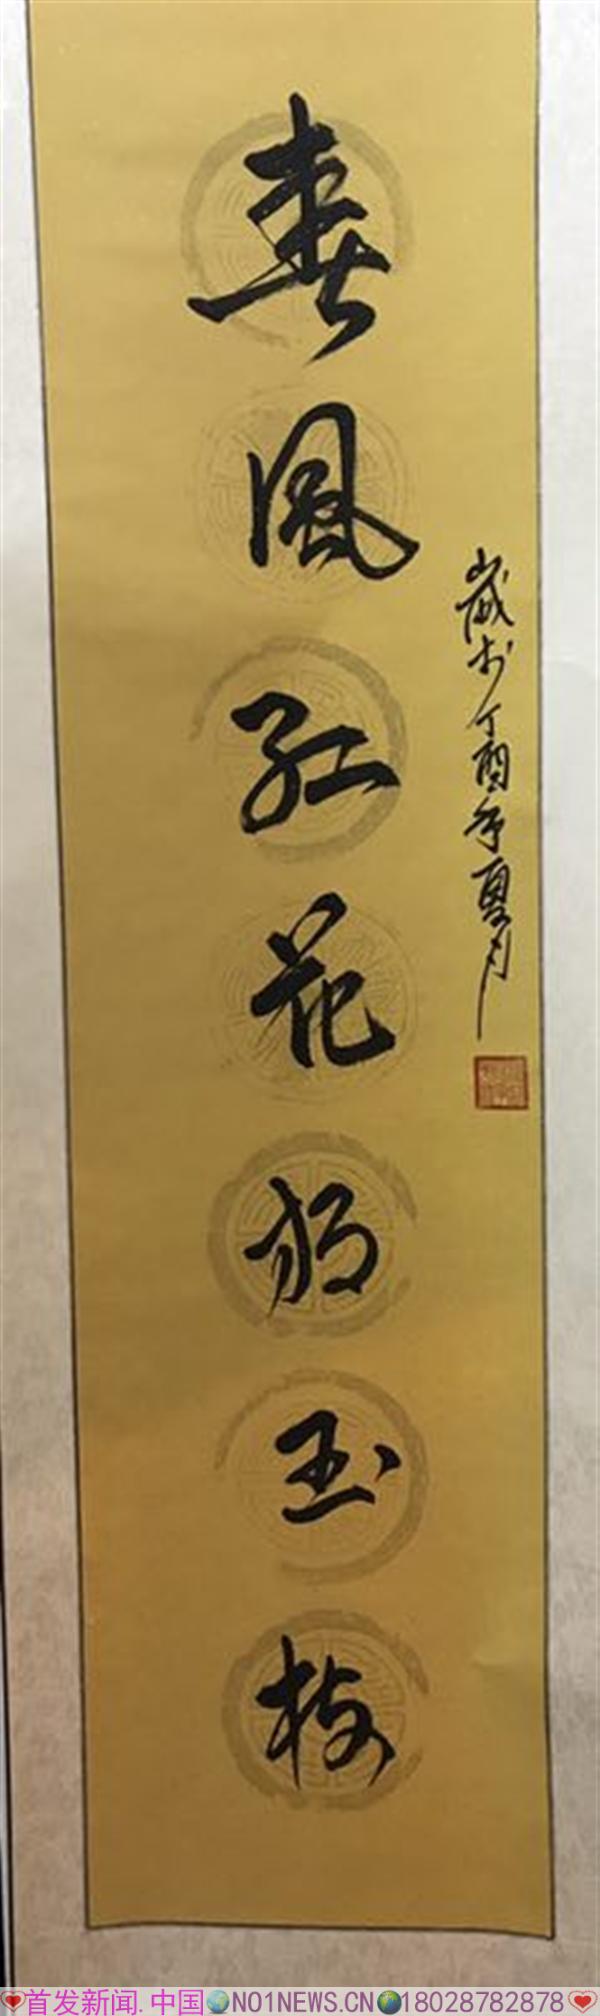 春风红花初玉枝
岁次丁酉年夏月
首发新闻.中国🌍NO1NEWS.CN🌍18028782878